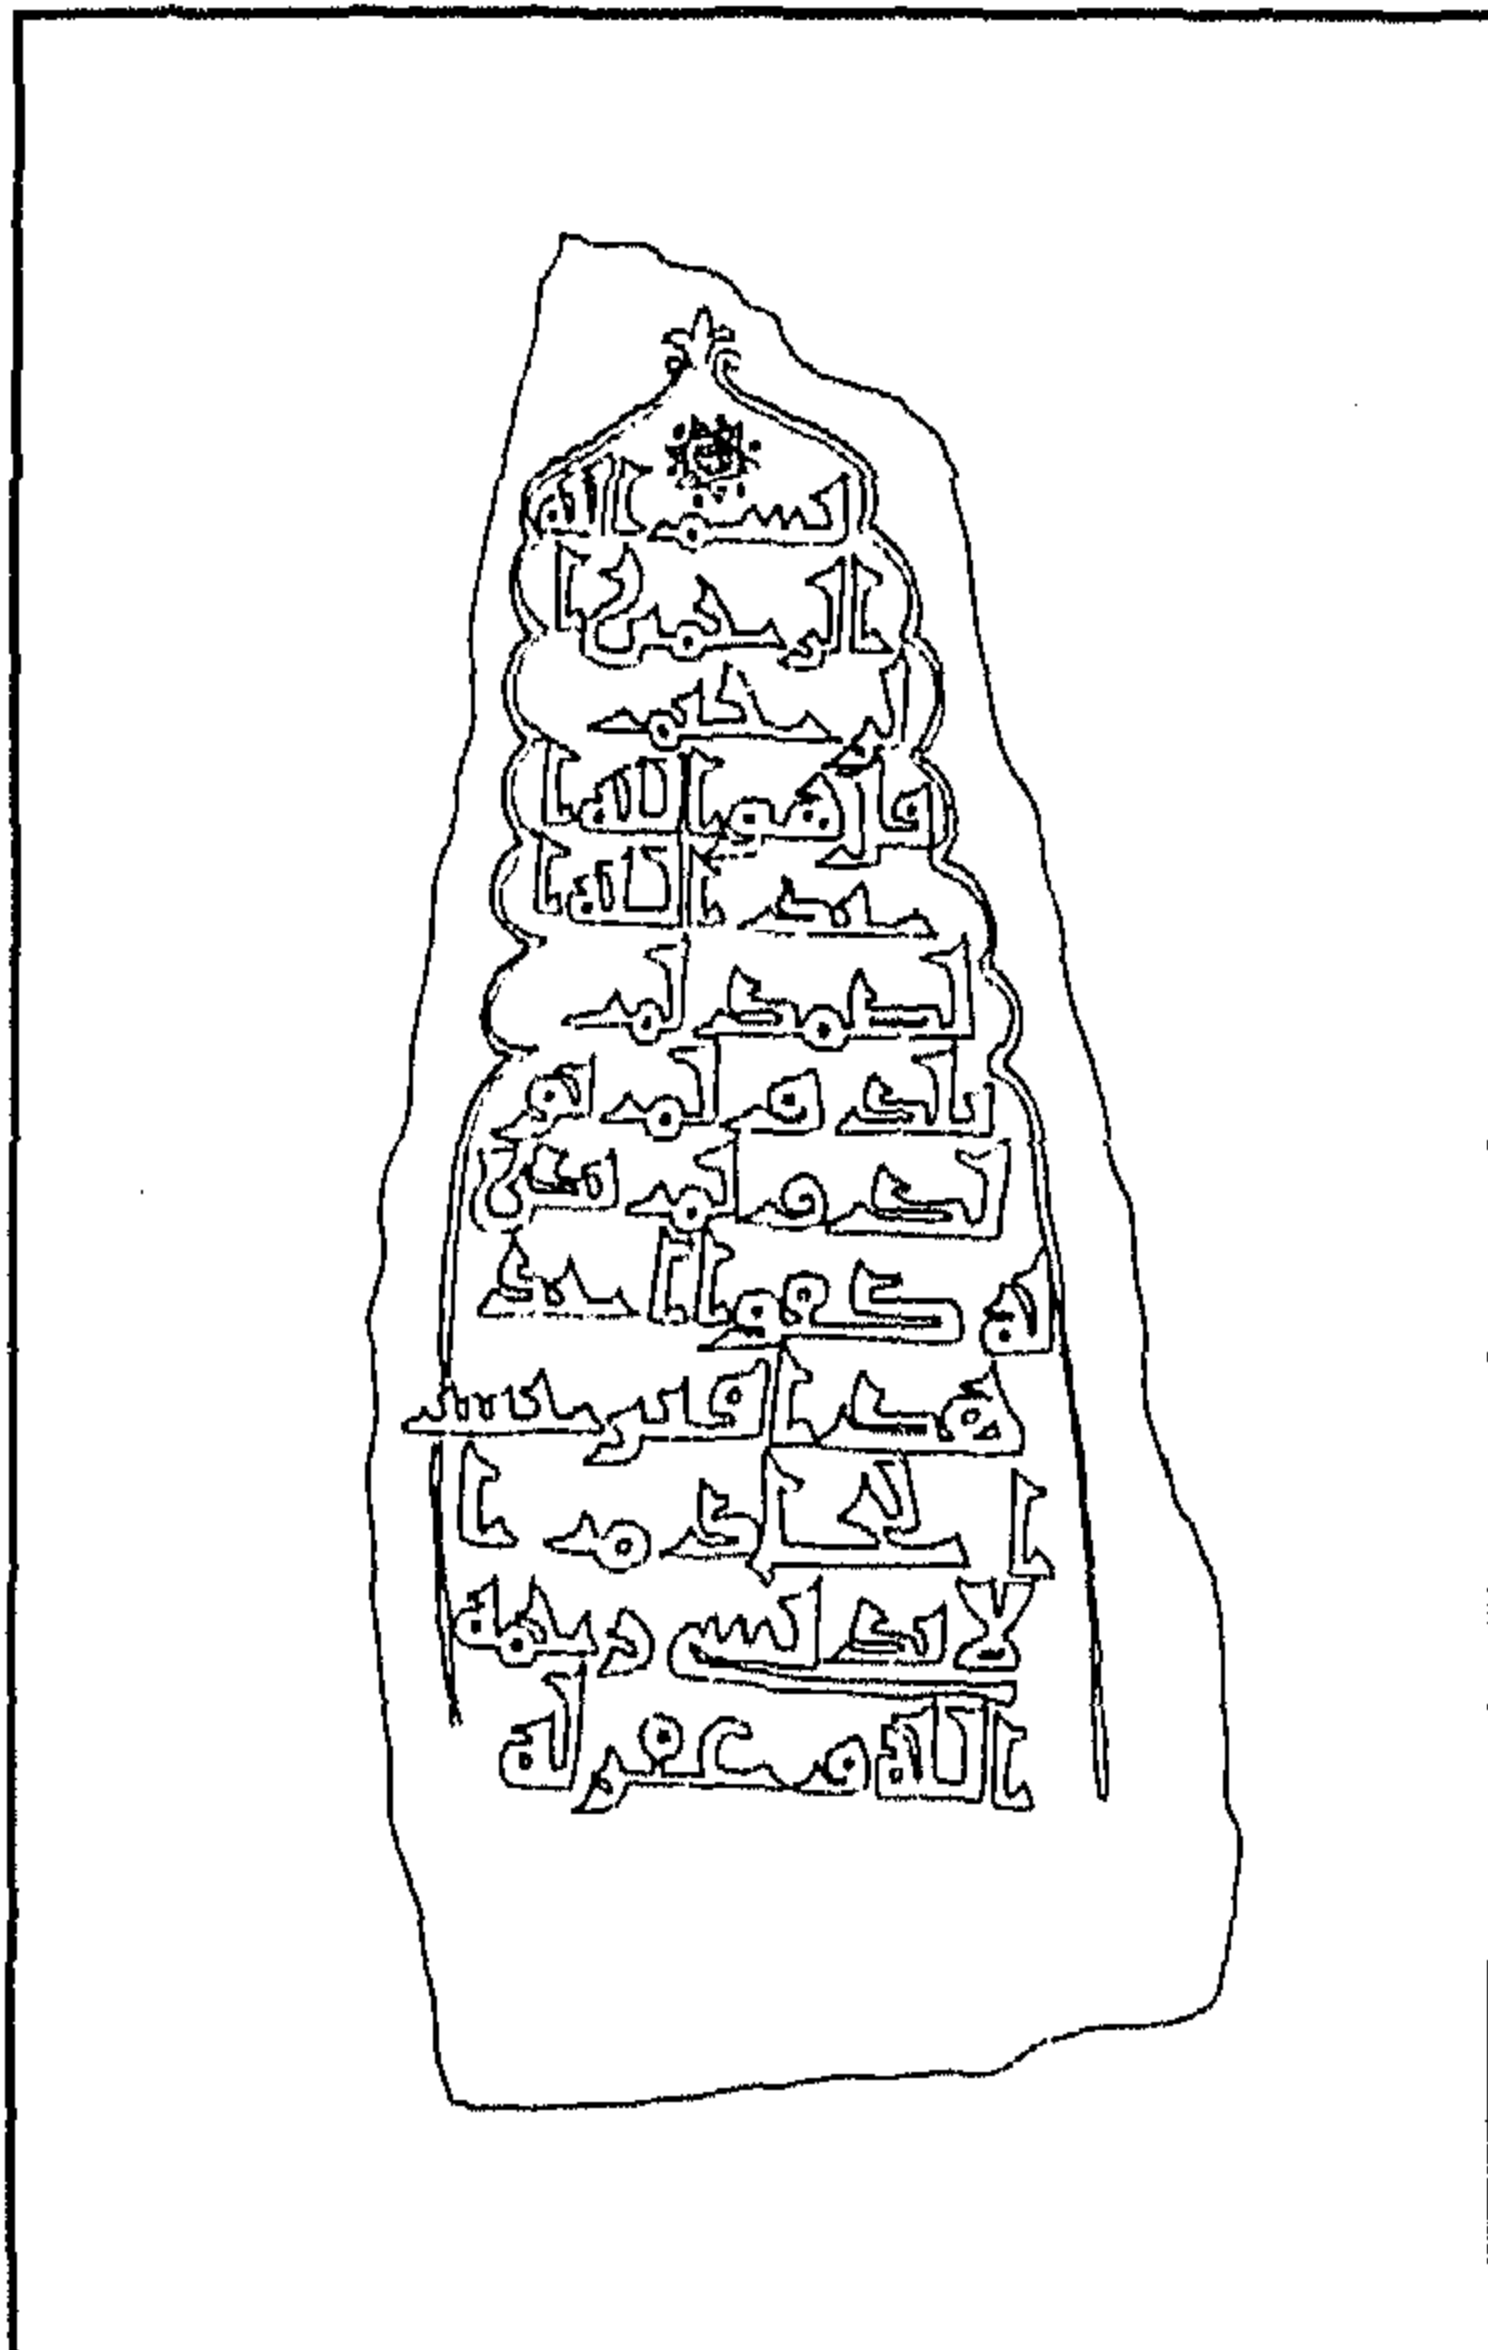 بسم الله
الرحمن ا
لرحيم
قل هو الله ا
حد الله ا
لصمد لم
يلد و لم يو
لد و لم يكن
له كفوا احد
هذا قبر
ا
لاندلسي رحمه
الله وغفر له